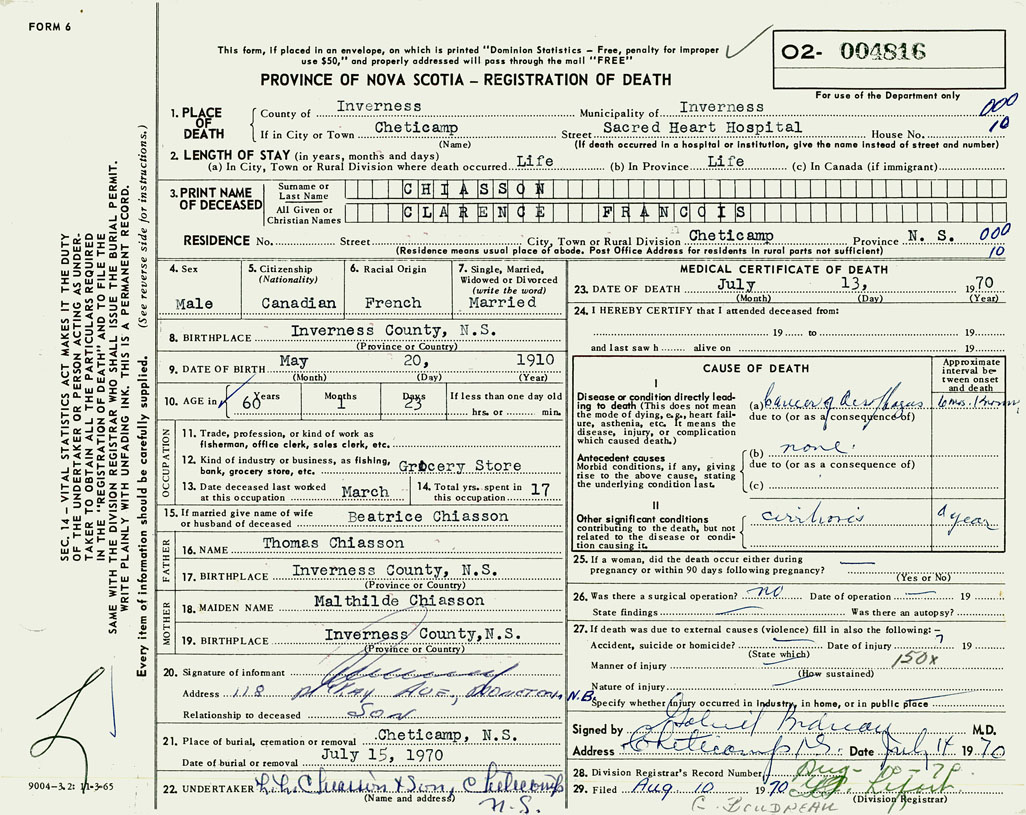 FORM 6
This form, if placed in an envelope, on which is printed "Dominion Statistics – Free, penalty for improper
use $50," and properly addressed will pass through the mail "FREE"
PROVINCE OF NOVA SCOTIA – REGISTRATION OF DEATH
O2- 004816
For use of the Department only
1. PLACE OF DEATH
County of Inverness Municipality of Inverness 000
If in City or Town Cheticamp Street Sacred Heart Hospital House No. 10
(Name) (If death occurred in a hospital or institution, give the name instead of street and number)
2. LENGTH OF STAY (in years, months and days)
(a) In City, Town or Rural Division where death occurred Life (b) In Province Life (c) In Canada (if immigrant)
3. PRINT NAME OF DECEASED
Surname or Last Name CHIASSON
All Given or Christian Names CLARENCE FRANCOIS
RESIDENCE No. Street City, Town or Rural Division Cheticamp Province N. S. 000
(Residence means usual place of abode. Post Office Address for residents in rural parts not sufficient) 10
4. Sex
Male
5. Citizenship
(Nationality)
Canadian
6. Racial Origin
French
7. Single, Married,
Widowed or Divorced
(write the word)
Married
8. BIRTHPLACE Inverness County, N.S.
(Province or Country)
9. DATE OF BIRTH May 20, 1910
(Month) (Day) (Year)
10. AGE in 60 Years Months 1 Days 23 If less than one day old
hrs. or min.
OCCUPATION
11. Trade, profession, or kind of work as
fisherman, office clerk, sales clerk, etc.
12. Kind of industry or business, as fishing,
bank, grocery store, etc. Grocery Store
13. Date deceased last worked
at this occupation March
14. Total yrs. spent in
this occupation 17
15. If married give name of wife
or husband of deceased Beatrice Chiasson
FATHER
16. NAME Thomas Chiasson
17. BIRTHPLACE Inverness County, N.S.
(Province or Country)
MOTHER
18. MAIDEN NAME Malthilde Chiasson
19. BIRTHPLACE Inverness County,N.S.
(Province or Country)
20. Signature of informant
Address 118 McKay Ave., Moncton N.B.
Relationship to deceased Son
21. Place of burial, cremation or removal Cheticamp, N.S.
Date of burial or removal July 15, 1970
22. UNDERTAKER Chiasson & Son, Cheticamp
(Name and address) N.S.
MEDICAL CERTIFICATE OF DEATH
23. DATE OF DEATH July 13, 1970
(Month) (Day) (Year)
24. I HEREBY CERTIFY that I attended deceased from:
19 to 19
and last saw h alive on 19
CAUSE OF DEATH
Approximate
interval be-
tween onset
and death
I
Disease or condition directly lead-
ing to death (This does not
mean the mode of dying, e.g., heart fail-
ure, asthenia, etc. It means the
disease, injury, or complication
which caused death.)
(a) Cancer of Oesophagus 6 mos.
due to (or as a consequence of)
Antecedent causes
Morbid conditions, if any, giving
rise to the above cause, stating
the underlying condition last.
(b) none
due to (or as a consequence of)
(c)
II
Other significant conditions
contributing to the death, but not
related to the disease or condi-
tion causing it.
cirrhosis year
25. If a woman, did the death occur either during
pregnancy or within 90 days following pregnancy?
(Yes or No)
26. Was there a surgical operation? no Date of operation 19
State findings Was there an autopsy?
27. If death was due to external causes (violence) fill in also the following:
Accident, suicide or homicide? Date of injury 19
(State which) 150x
Manner of injury
(How sustained)
Nature of injury
Specify whether injury occurred in industry, in home, or in public place
Signed by Gabriel Boudreau M.D.
Address Cheticamp N.S. Date July 14 1970
28. Division Registrar's Record Number
29. Filed Aug 10 1970
(Division Registrar)
C. BOUDREAU
SEC. 14 – VITAL STATISTICS ACT MAKES IT THE DUTY
OF THE UNDERTAKER OR PERSON ACTING AS UNDER-
TAKER TO OBTAIN ALL THE PARTICULARS REQUIRED
IN THE "REGISTRATION OF DEATH" AND TO FILE THE
SAME WITH THE DIVISION REGISTRAR WHO SHALL ISSUE THE BURIAL PERMIT.
WRITE PLAINLY WITH UNFADING INK. THIS IS A PERMANENT RECORD.
Every item of information should be carefully supplied. (See reverse side for instructions.)
9004-3.2: 11-3-65